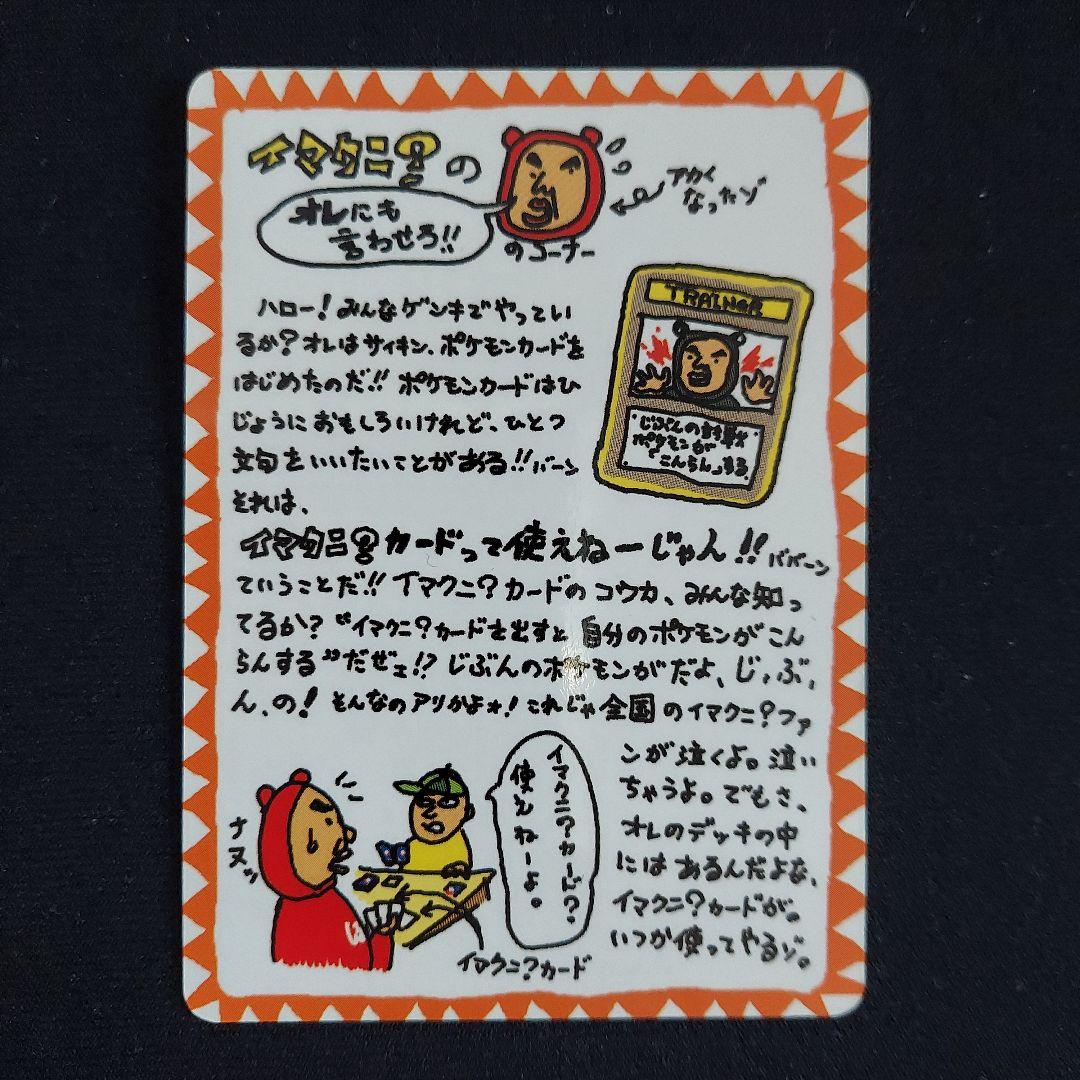 イマクニ?の
オレにも
言わせろ!!
のコーナー
アカく
なったゾ
TRAINER
じぶんの対戦
ポケモンが
「こんらん」する.
ハロー!みんなゲンキでやってい
るか?オレはサイキン、ポケモンカードを
はじめたのだ!!ポケモンカードはひ
じょうにおもしろいけれど、ひとつ
文句をいいたいことがある!!バーン
それは、
イマクニ?カードって使えねーじゃん!!ババーン
ていうことだ!!イマクニ?カードのコウカ、みんな知っ
てるか?“イマクニ?カードを出すと自分のポケモンがこん
らんする”だぜェ!?じぶんのポケモンがだよ、じ、ぶ、
ん、の!そんなのアリかよォ!これじゃ全国のイマクニ?ファ
ンが泣くよ。泣い
ちゃうよ。でもさ、
オレのデッキの中
にはあるんだよな、
イマクニ?カードが。
いつか使ってやるゾ。
イマクニ?カード?
使えねーよ。
ナヌッ
イマクニ?カード